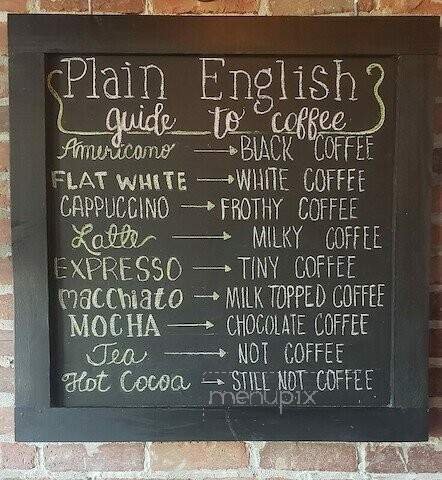 Plain English
guide to coffee
Americano → BLACK COFFEE
FLAT WHITE → WHITE COFFEE
CAPPUCCINO → FROTHY COFFEE
Latte → MILKY COFFEE
EXPRESSO → TINY COFFEE
macchiato → MILK TOPPED COFFEE
MOCHA → CHOCOLATE COFFEE
Tea → NOT COFFEE
Hot Cocoa → STILL NOT COFFEE
menupix